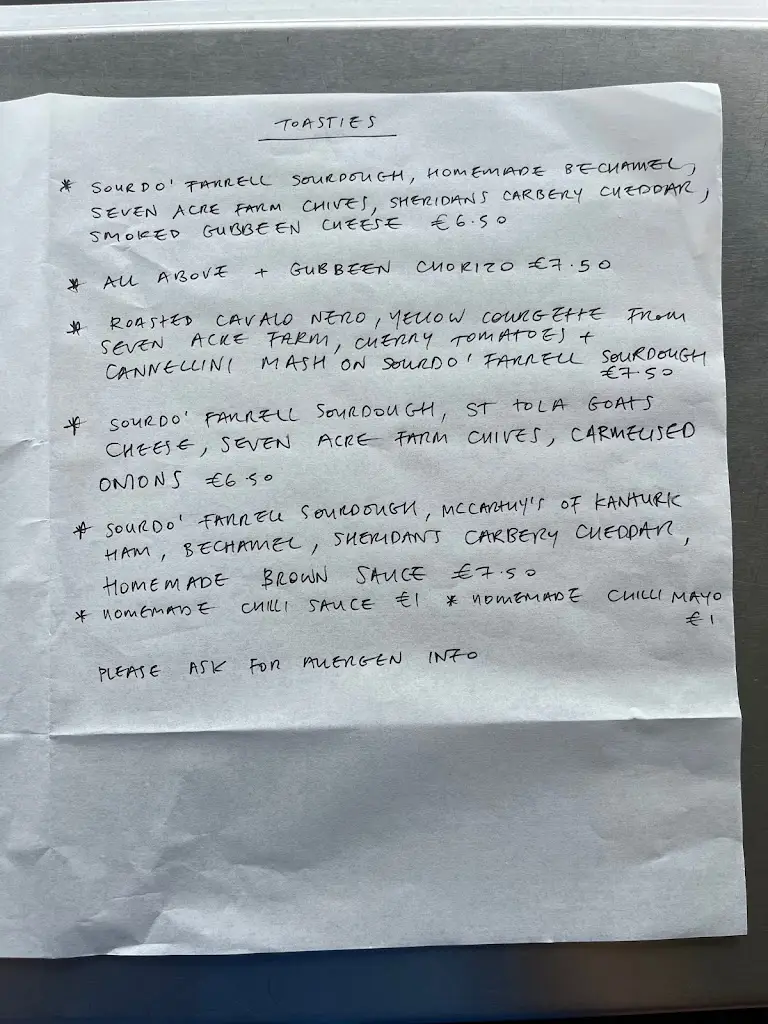 TOASTIES
* SOURDO' FARRELL SOURDOUGH, HOMEMADE BECHAMEL,
SEVEN ACRE FARM CHIVES, SHERIDANS CARBERY CHEDDAR,
SMOKED GUBBEEN CHEESE €6.50
* ALL ABOVE + GUBBEEN CHORIZO €7.50
* ROASTED CAVALO NERO, YELLOW COURGETTE FROM
SEVEN ACRE FARM, CHERRY TOMATOES +
CANNELLINI MASH ON SOURDO' FARRELL SOURDOUGH
€7.50
* SOURDO' FARRELL SOURDOUGH, ST TOLA GOATS
CHEESE, SEVEN ACRE FARM CHIVES, CARMELISED
ONIONS €6.50
* SOURDO' FARRELL SOURDOUGH, MCCARTHY'S OF KANTURK
HAM, BECHAMEL, SHERIDANS CARBERY CHEDDAR,
HOMEMADE BROWN SAUCE €7.50
* HOMEMADE CHILLI SAUCE €1 * HOMEMADE CHILLI MAYO
€1
PLEASE ASK FOR ALLERGEN INFO